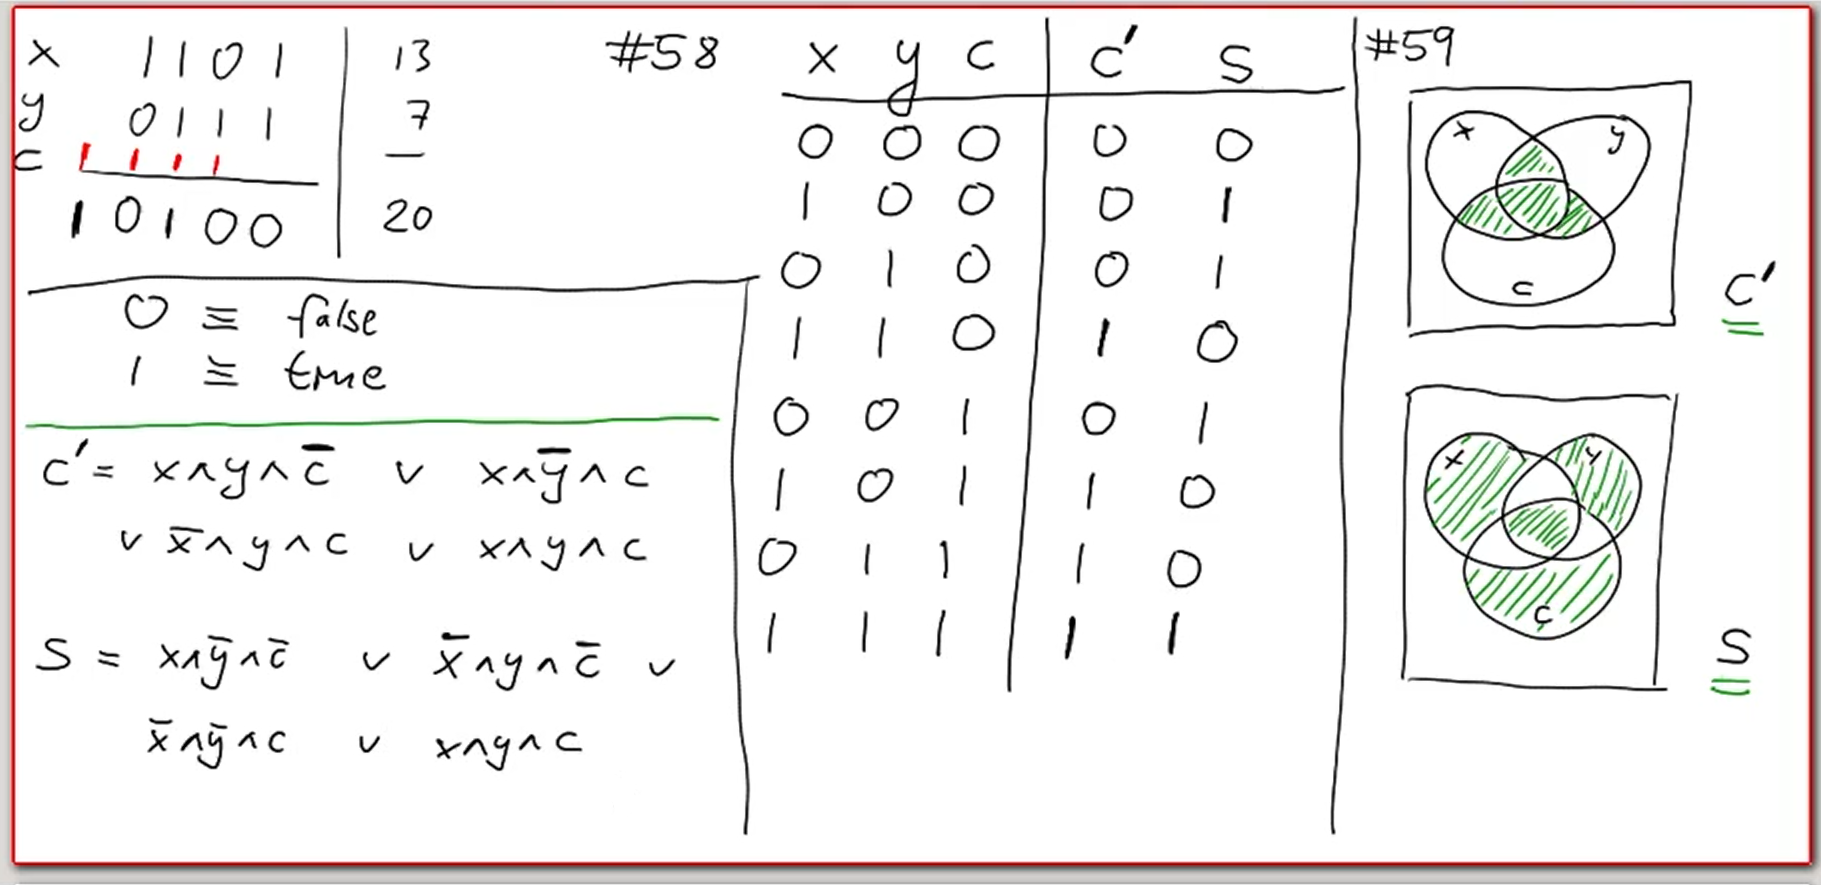 x 1 1 0 1 13
y 0 1 1 1 7
c 1 1 1 1 —
1 0 1 0 0 20
0 ≡ false
1 ≡ true
c' = x∧y∧c̅ ∨ x∧y̅∧c
∨ x̅∧y∧c ∨ x∧y∧c
S = x∧y̅∧c̅ ∨ x̅∧y∧c̅ ∨
x̅∧y̅∧c ∨ x∧y∧c
#58
x y c c' s
0 0 0 0 0
1 0 0 0 1
0 1 0 0 1
1 1 0 1 0
0 0 1 0 1
1 0 1 1 0
0 1 1 1 0
1 1 1 1 1
#59
x y
c
c'
x y
c
S